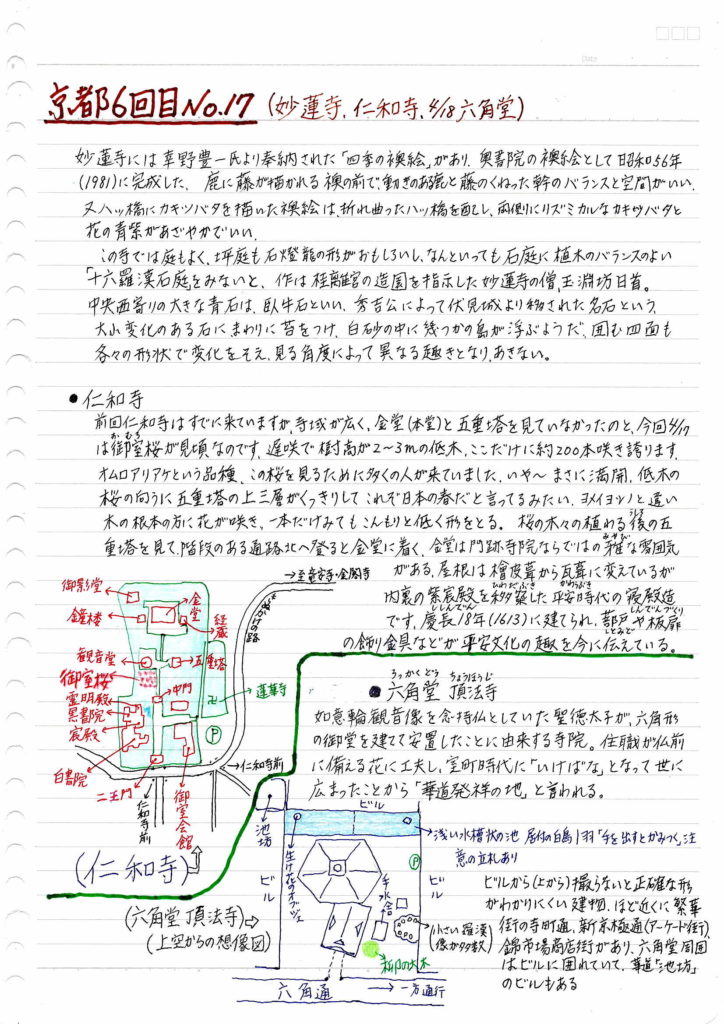 Date
京都6回目No.17 (妙蓮寺、仁和寺、4/18六角堂)
妙蓮寺には幸野豊一氏より奉納された「四季の襖絵」があり、奥書院の襖絵として昭和56年
(1981)に完成した、鹿に藤が描かれる襖の前で動きのある鹿と藤のくねった幹のバランスと空間がいい、
又八ッ橋にカキツバタを描いた襖絵は、折れ曲った八ッ橋を配し、両側にリズミカルなカキツバタと
花の青紫があざやかでいい、
この寺では庭もよく、坪庭も石燈籠の形がおもしろいし、なんといっても石庭に植木のバランスのよい
「十六羅漢石庭」をみないと、作は桂離宮の造園を指示した妙蓮寺の僧、玉淵坊日首。
中央西寄りの大きな青石は、臥牛石といい、秀吉公によって伏見城より移された名石という、
大小変化のある石にまわりに苔をつけ、白砂の中に幾つかの島が浮ぶようだ、囲む四面も
各々の形状で変化をそえ、見る角度によって異なる趣きとなり、あきない。
●仁和寺
前回仁和寺はすでに来ていますが、寺域が広く、金堂(本堂)と五重塔を見ていなかったのと、今回4/17
は御室桜が見頃なのです、遅咲で樹高が2〜3mの低木、ここだけに約200本咲き誇ります、
おむろ
オムロアリアケという品種、この桜を見るために多くの人が来ていました、いや〜まさに満開、低木の
桜の向うに五重塔の上三層がくっきりしてこれぞ日本の春だと言ってるみたい、ヨメイヨシノと違い
木の根本の方に花が咲き、一本だけみてもこんもりと低く形をとる。桜の木々の植わる後の五
うしろ
重塔を見て、階段のある通路北へ登ると金堂に着く、金堂は門跡寺院ならではの雅な雰囲気
みやび
がある、屋根は檜皮葺から瓦葺に変えているが
ひわだぶき かわらぶき
内裏の紫宸殿を移築した、平安時代の寝殿造
ししんでん しんでんづくり
です、慶長18年(1613)に建てられ、蔀戸や板扉
しとみど
の飾り金具などが平安文化の趣を今に伝えている。
→至竜安寺・金閣寺
きぬかけの路
御影堂
金堂
鐘楼
経蔵
観音堂
五重塔
御室桜
中門
蓮華寺
卍
霊明殿
黒書院
宸殿
白書院
二王門
御室会館
P
仁和寺前
仁和寺前
(仁和寺)
●六角堂 頂法寺
ろっかくどう ちょうほうじ
如意輪観音像を念持仏としていた聖徳太子が、六角形
の御堂を建てて安置したことに由来する寺院。住職が仏前
に備える花に工夫し、室町時代に「いけばな」となって世に
広まったことから「華道発祥の地」と言われる。
ビル
池坊
生け花のオブジェ
ビル
ビル
P
手水舎
浅い水槽状の池 居付の白鳥1羽「手を出すとかみつく」注
意の立札あり
小さい羅漢
像が多数
柳の大木
六角通
→一方通行
(六角堂 頂法寺)⇨
(上空からの想像図)
ビルから(上から)撮らないと正確な形
がわかりにくい建物、ほど近くに繁華
街の寺町通、新京極通(アーケード街)、
錦市場商店街があり、六角堂周囲
はビルに囲れていて、華道「池坊」
のビルもある